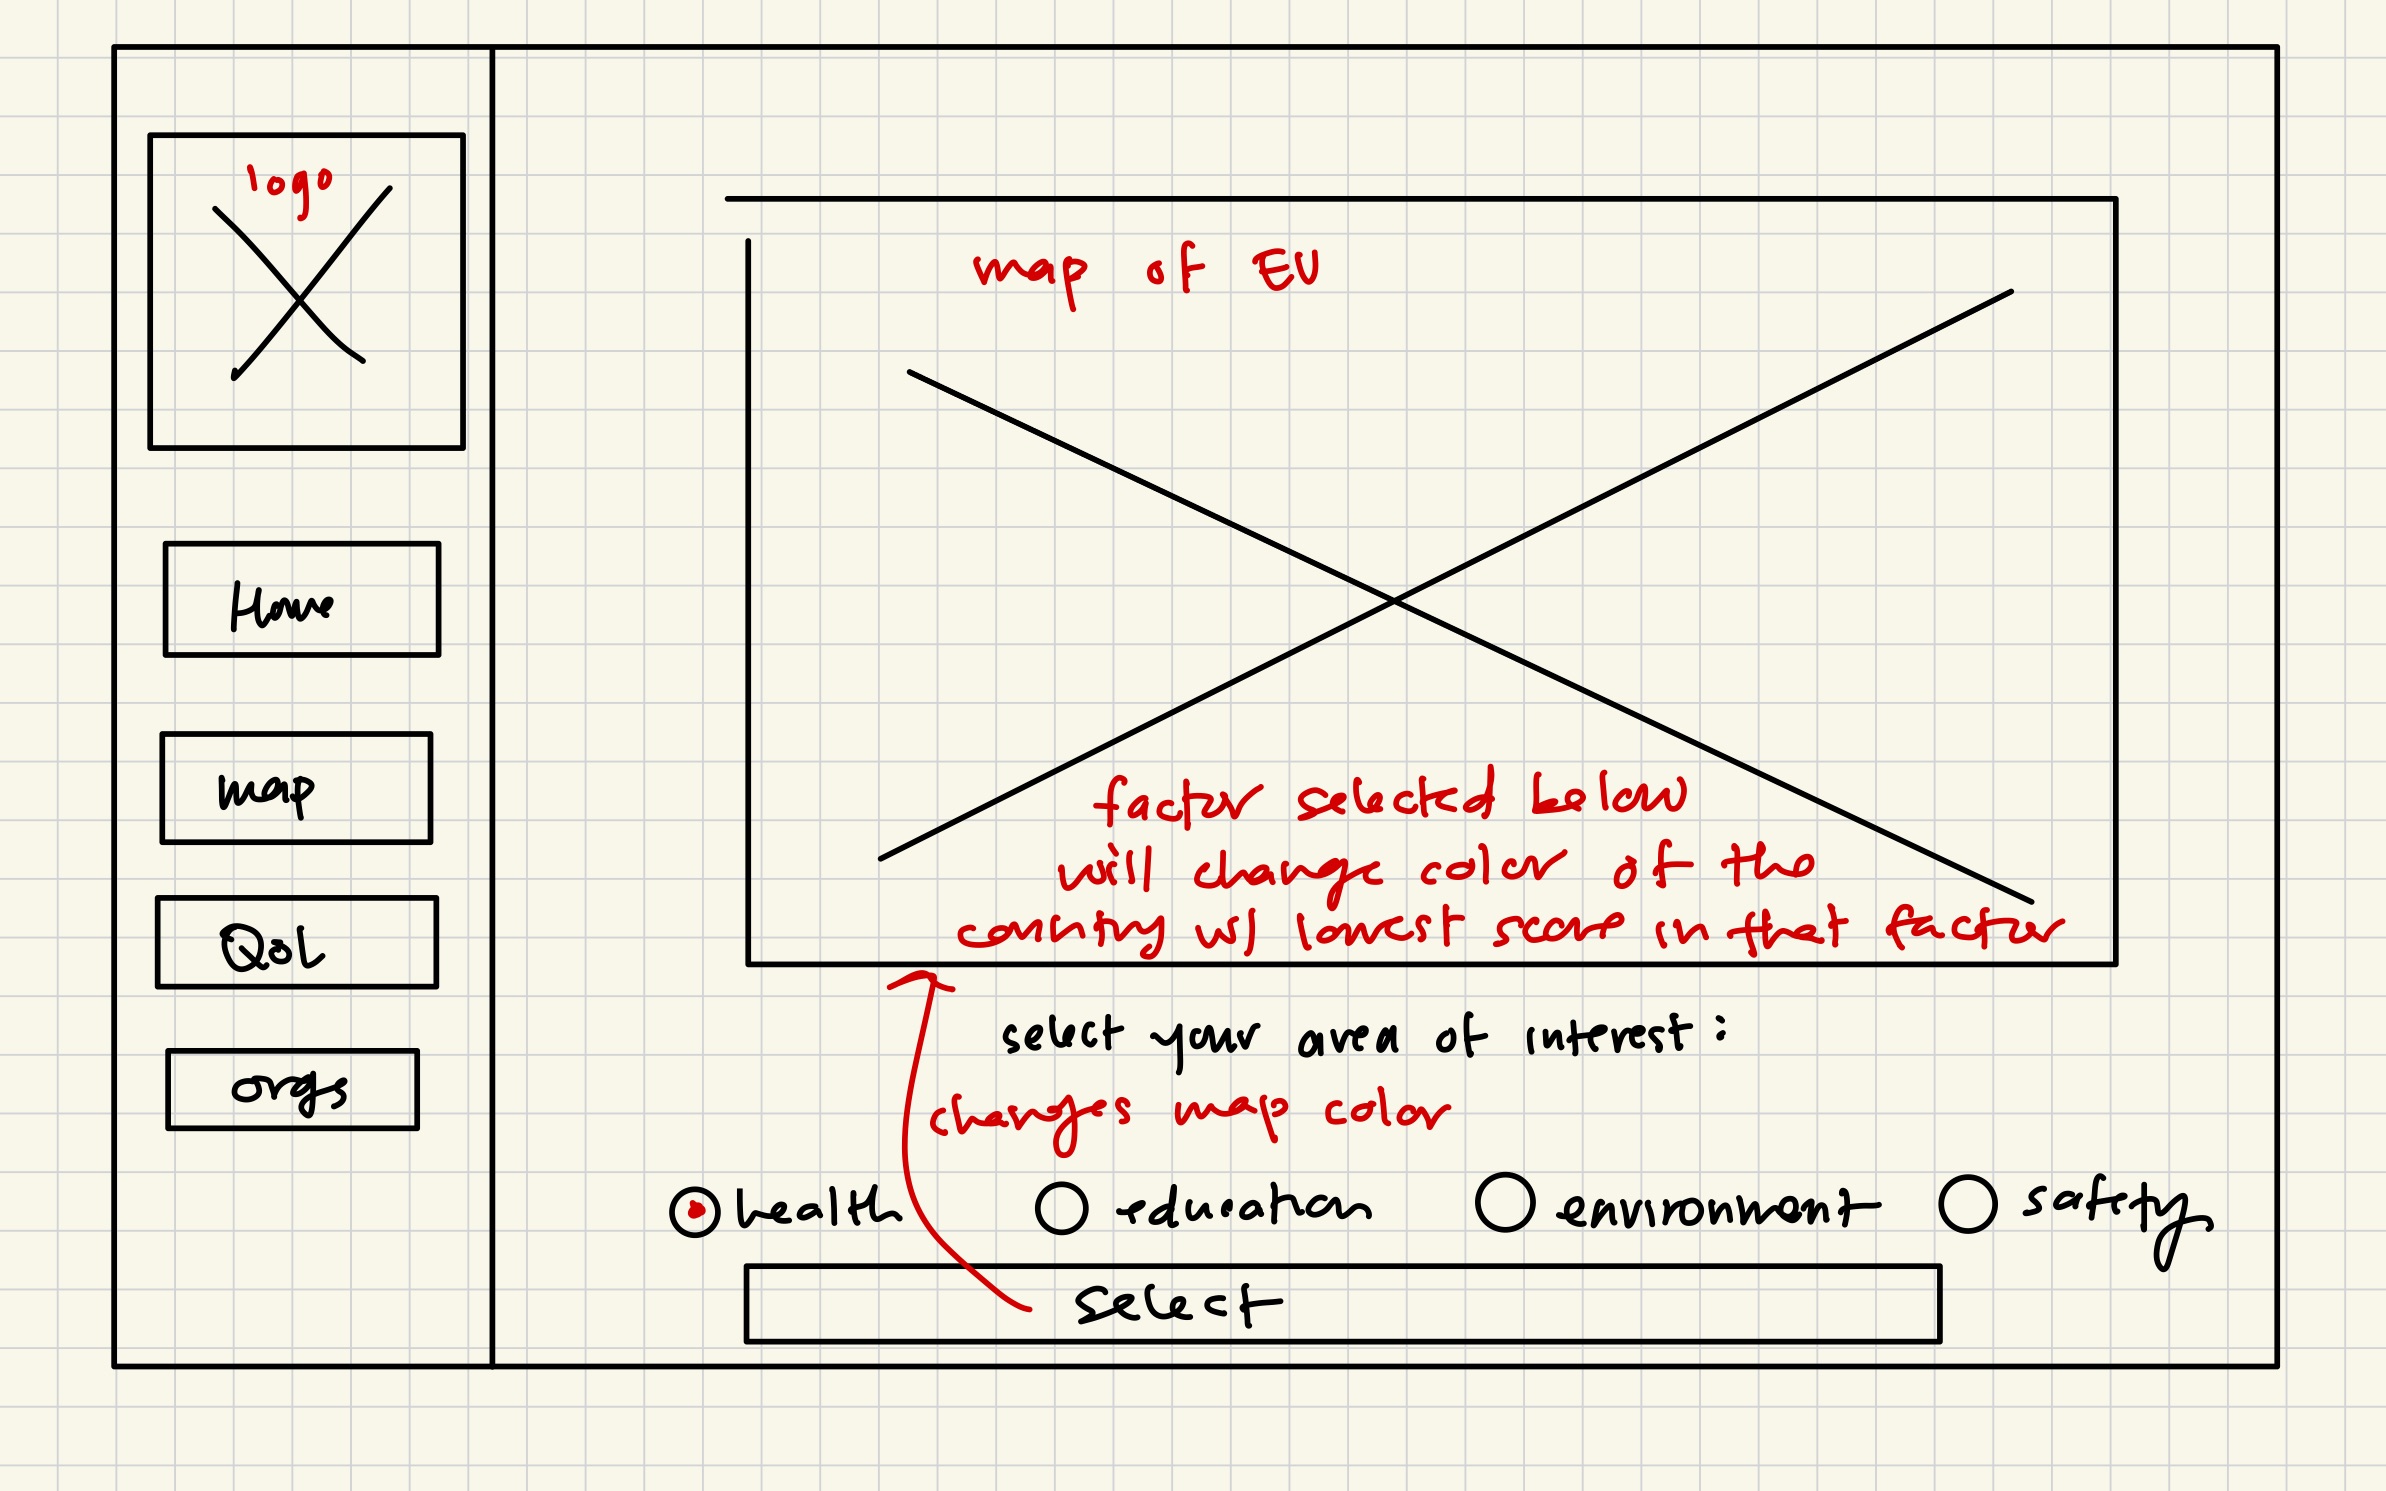 logo
Home
map
QoL
orgs
map of EU
factor selected below
will change color of the
country w/ lowest score in that factor
select your area of interest:
changes map color
health education environment safety
select